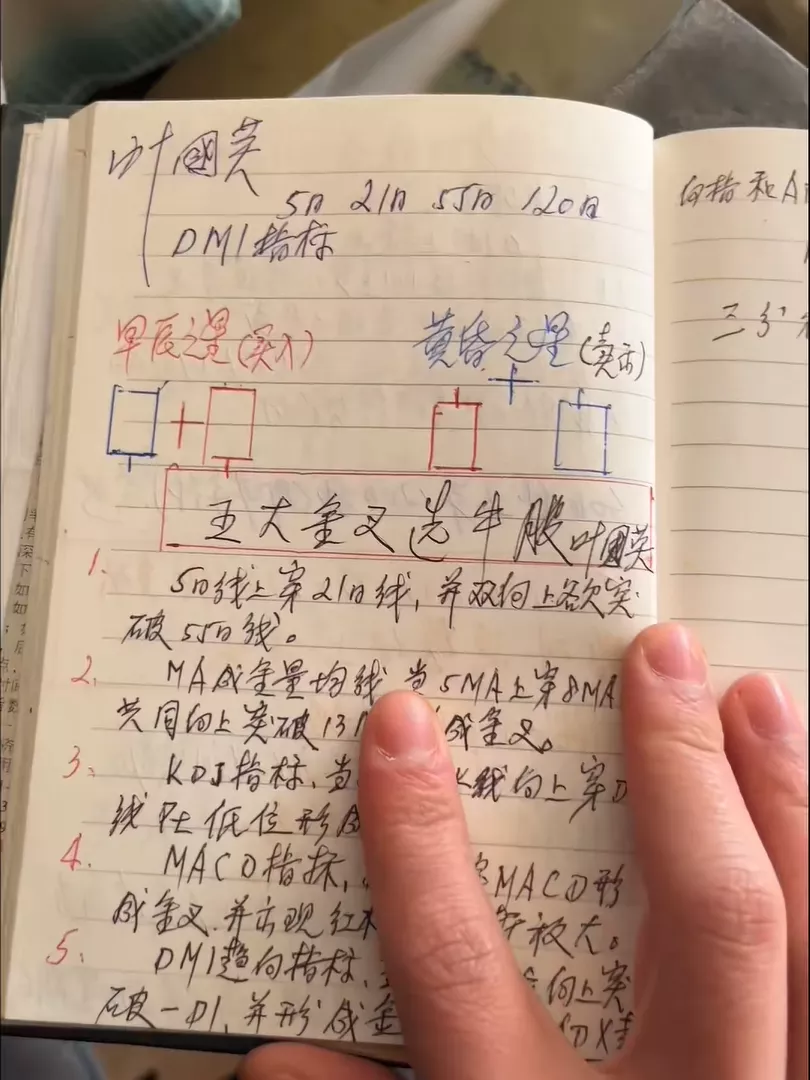 叶國英
5日 21日 55日 120日
DMI指标
早辰之星(买入)
黄昏之星(卖出)
五大金叉选牛股叶國英
1. 5日线上穿21日线，并双向上各欠突
破55日线。
2. MA成金量均线 当5MA上穿8MA
共同向上突破13 成金叉。
3. KDJ指标，当 线向上穿D
线 在低位形成
4. MACD指标， MACD形
成金叉.并出现红 放大。
5. DMI趋向指标， 向上突
破-DI，并形成金
向指和A
三